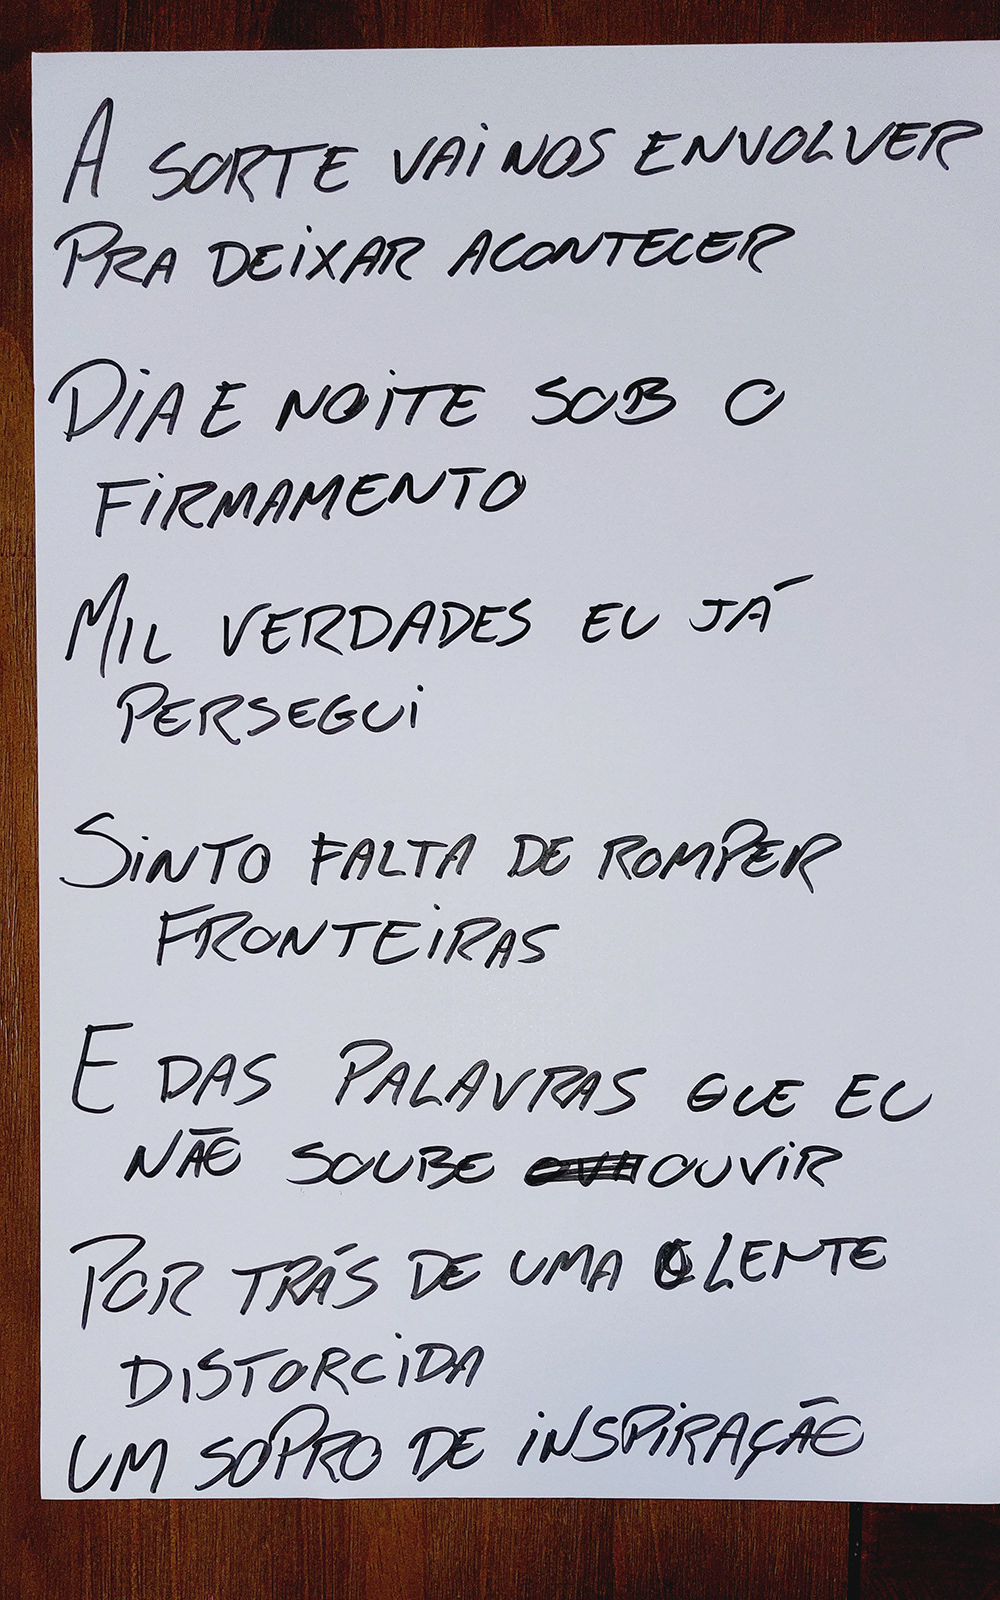 A SORTE VAI NOS ENVOLVER
PRA DEIXAR ACONTECER
DIA E NOITE SOB O
FIRMAMENTO
MIL VERDADES EU JÁ
PERSEGUI
SINTO FALTA DE ROMPER
FRONTEIRAS
E DAS PALAVRAS QUE EU
NÃO SOUBE OUVIR
POR TRÁS DE UMA LENTE
DISTORCIDA
UM SOPRO DE INSPIRAÇÃO